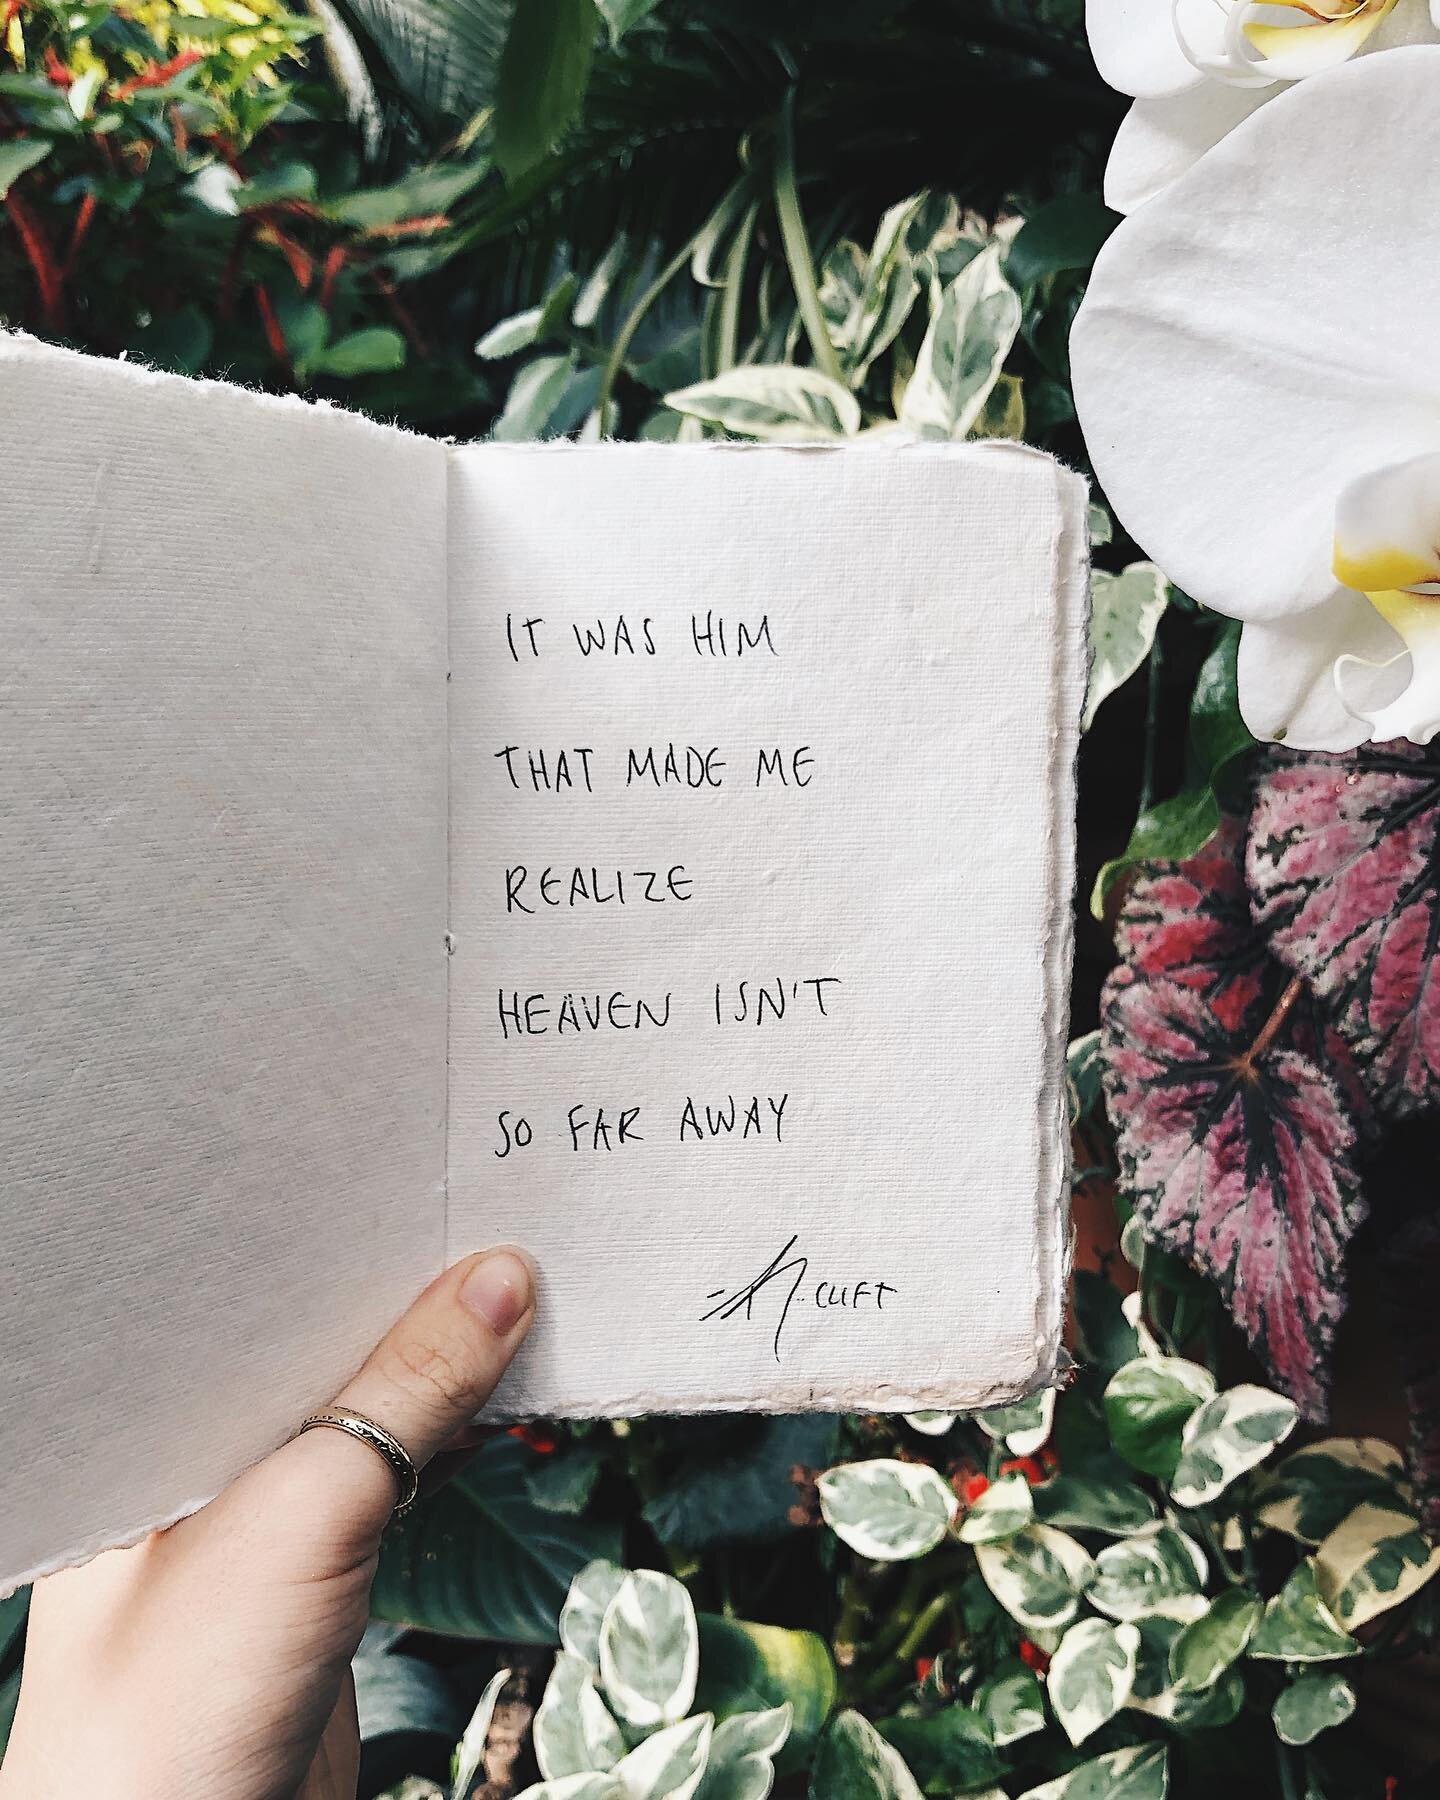 IT WAS HIM
THAT MADE ME
REALIZE
HEAVEN ISN'T
SO FAR AWAY
CLIFT